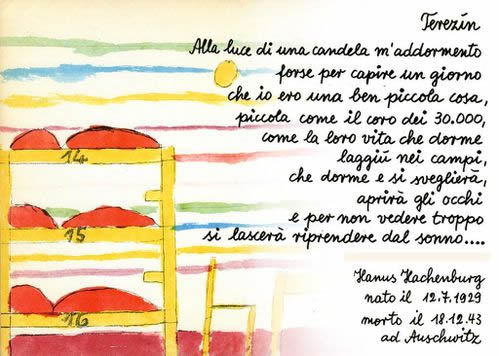 Terezín
Alla luce di una candela m'addormento
forse per capire un giorno
che io ero una ben piccola cosa,
piccola come il coro dei 30.000,
come la loro vita che dorme
laggiú nei campi,
che dorme e si sveglierà,
aprirà gli occhi
e per non vedere troppo
si lascerà riprendere dal sonno....
14
15
16
Hanus Hachenburg
nato il 12.7.1929
morto il 18.12.43
ad Auschwitz